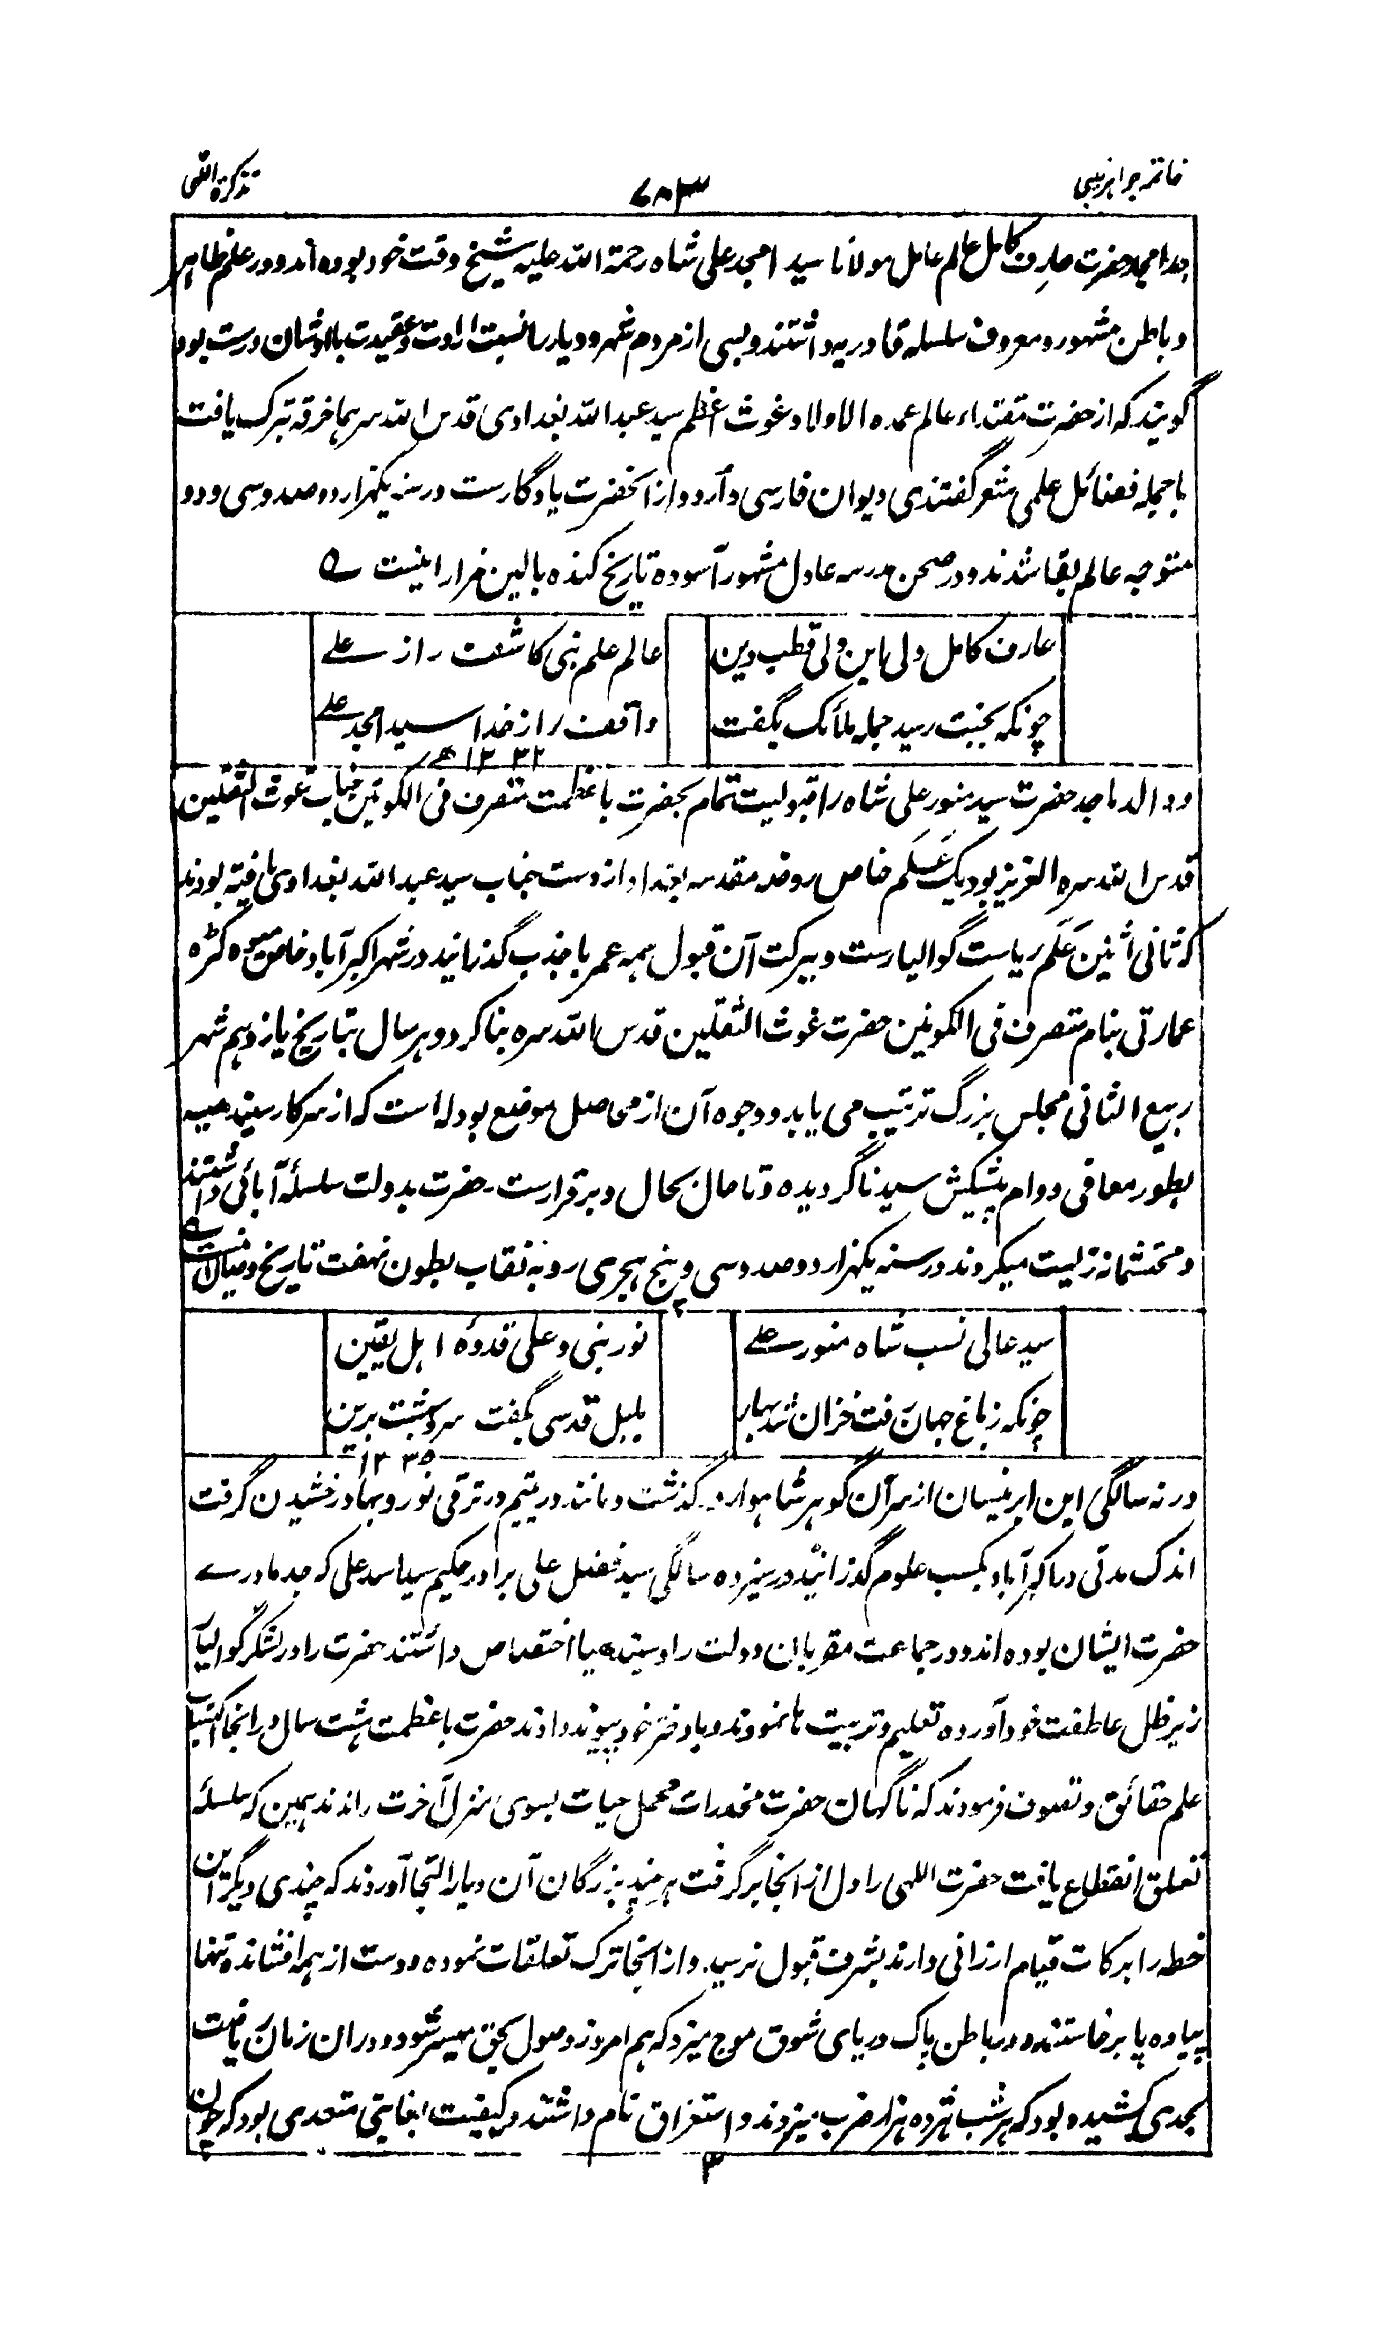 خاتمه جواهر غیبی
۷۸۳
تذکرة اللهی
جد امجد حضرت عارف کامل عالم عامل مولانا سید امجد علی شاه رحمة الله علیه شیخ وقت خود بوده اند و در علم ظاهر
و باطن مشهور و معروف سلسله قادریه داشتند و بسی از مردم شهر و دیار را نسبت ارادت و عقیدت با اوشان درست بود
گویند که از حضرت مقتداء عالم عمده الاولاد غوث اعظم سید عبد الله بغدادی قدس الله سرهما خرقه تبرک یافت
با جمله فضائل علمی شعر گفتندی دیوان فارسی و اردو از آنحضرت یادگارست در سنه یکهزار دو صد و سی و دو
متوجه عالم بقا شدند و در صحن مدرسه عادل مشهور آسوده تاریخ کنده بالین مزار اینست ے
عارف کامل ولی ابن ولی قطب دین
عالم علم نبی کاشف راز علے
چونکه بجنت رسید جمله ملائک بگفت
واقف راز خدا سید امجد علے
۱۲۳۲ھ
و والد ماجد حضرت سید منور علی شاه را قبولیت تمام بحضرت با عظمت متصرف فی الکونین جناب غوث الثقلین
قدس الله سره العزیز بود یک علم خاص روضه مقدسه بغداد از دست جناب سید عبد الله بغدادی یافته بودند
که ثانی اثنین علم ریاست گوالیارست و ببرکت آن قبول همه عمر با جذب گذرانید در شهر اکبرآباد خاص میوه کٹره
عمارتی بنام متصرف فی الکونین حضرت غوث الثقلین قدس الله سره بنا کرد و هر سال بتاریخ یازدهم شهر
ربیع الثانی مجلس بزرگ ترتیب می یابد و وجوه آن از محاصل موضع بودله است که از سرکار سیندهیه
بطور معافی دوام پیشکش سیدنا گردیده و تا حال بحال و برقرارست۔ حضرت بدولت سلسلۀ آبائی داشتند
و محتشمانه زیست میکردند در سنه یکهزار دو صد و سی و پنج هجری رو به نقاب بطون نهفت تاریخ وصال اینست ے
سید عالی نسب شاه منور علے
نور نبی و علی قدوۀ اهل یقین
چونکه ز باغ جهان رفت خزان شد بهار
بلبل قدسی بگفت سرو بهشت برین
۱۲۳۵
در نه سالگی این ابر نیسان از سر آن گوهر شاهوار در گذشت و مانند در یتیم در ترقی نور و بها درخشیدن گرفت
اندک مدتی در اکبرآباد بکسب علوم گذرانید در سیزده سالگی سید فضل علی برادر حکیم سید اسد علی که جد مادرے
حضرت ایشان بوده اند و در جماعت مقربان دولت راو سیندهیا اختصاص داشتند حضرت را در لشکر گوالیار
زیر ظل عاطفت خود آورده تعلیم و تربیت ها نمودند و با دختر خود پیوند دادند حضرت با عظمت هشت سال در آنجا اکتساب
علم حقائق و تصوف فرمودند که ناگهان حضرت مخدرات محمل حیات بسوی منزل آخرت راندند همین که سلسلۀ
تعلق انقطاع یافت حضرت اللهی را دل از آنجا برگرفت هر چند بزرگان آن دیار التجا آوردند که چندی دیگر این
خطه را برکات قیام ارزانی دارند بشرف قبول نرسید۔ و از آنجا ترک تعلقات نموده و دست از همه افشانده تنها
پیاده پا برخاستند و در باطن پاک دریای شوق موج میزد که هم امروز وصول بحق میسر شود و در ان زمان ریاضت
بحدی کشیده بود که هر شب هژده هزار ضرب میزدند و استغراق تام داشتند و کیفیت بغایتی متعدی بود که چون
۳